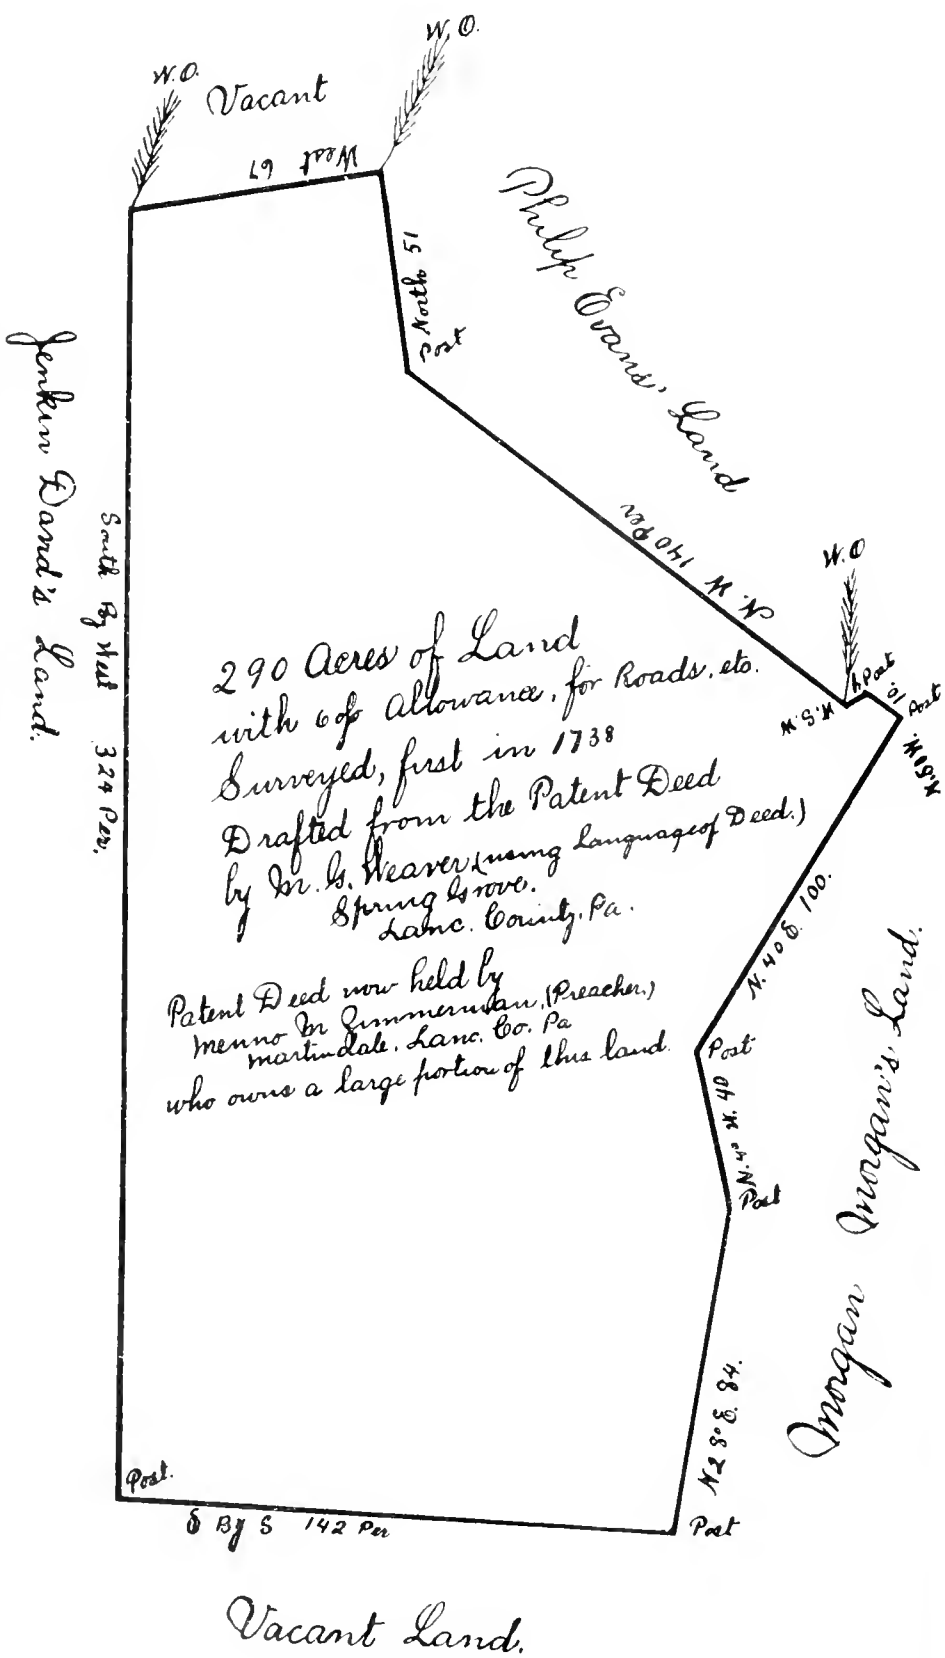 W.O.
W.O.
Vacant
West 67
North 51
Post
Philip Evans' Land
Jenkin David's Land.
South By West 324 Per.
N. W 140 Per
W.O
4 Post
10
Post
W.S.W
N.50W.
290 Acres of Land
with 6 % Allowance, for Roads, etc.
Surveyed, first in 1738
Drafted from the Patent Deed
by M. G. Weaver (using Language of Deed.)
Spring Grove.
Lanc. County, Pa.
Patent Deed now held by
Menno M Zimmerman, (Preacher.)
Martindale, Lanc. Co. Pa
who owns a large portion of this land.
N. 40 E. 100.
Post
N. 4° W. 40
Post
Morgan Morgan's Land.
N 28° E. 84.
Post.
E By S 142 Per
Post
Vacant Land.